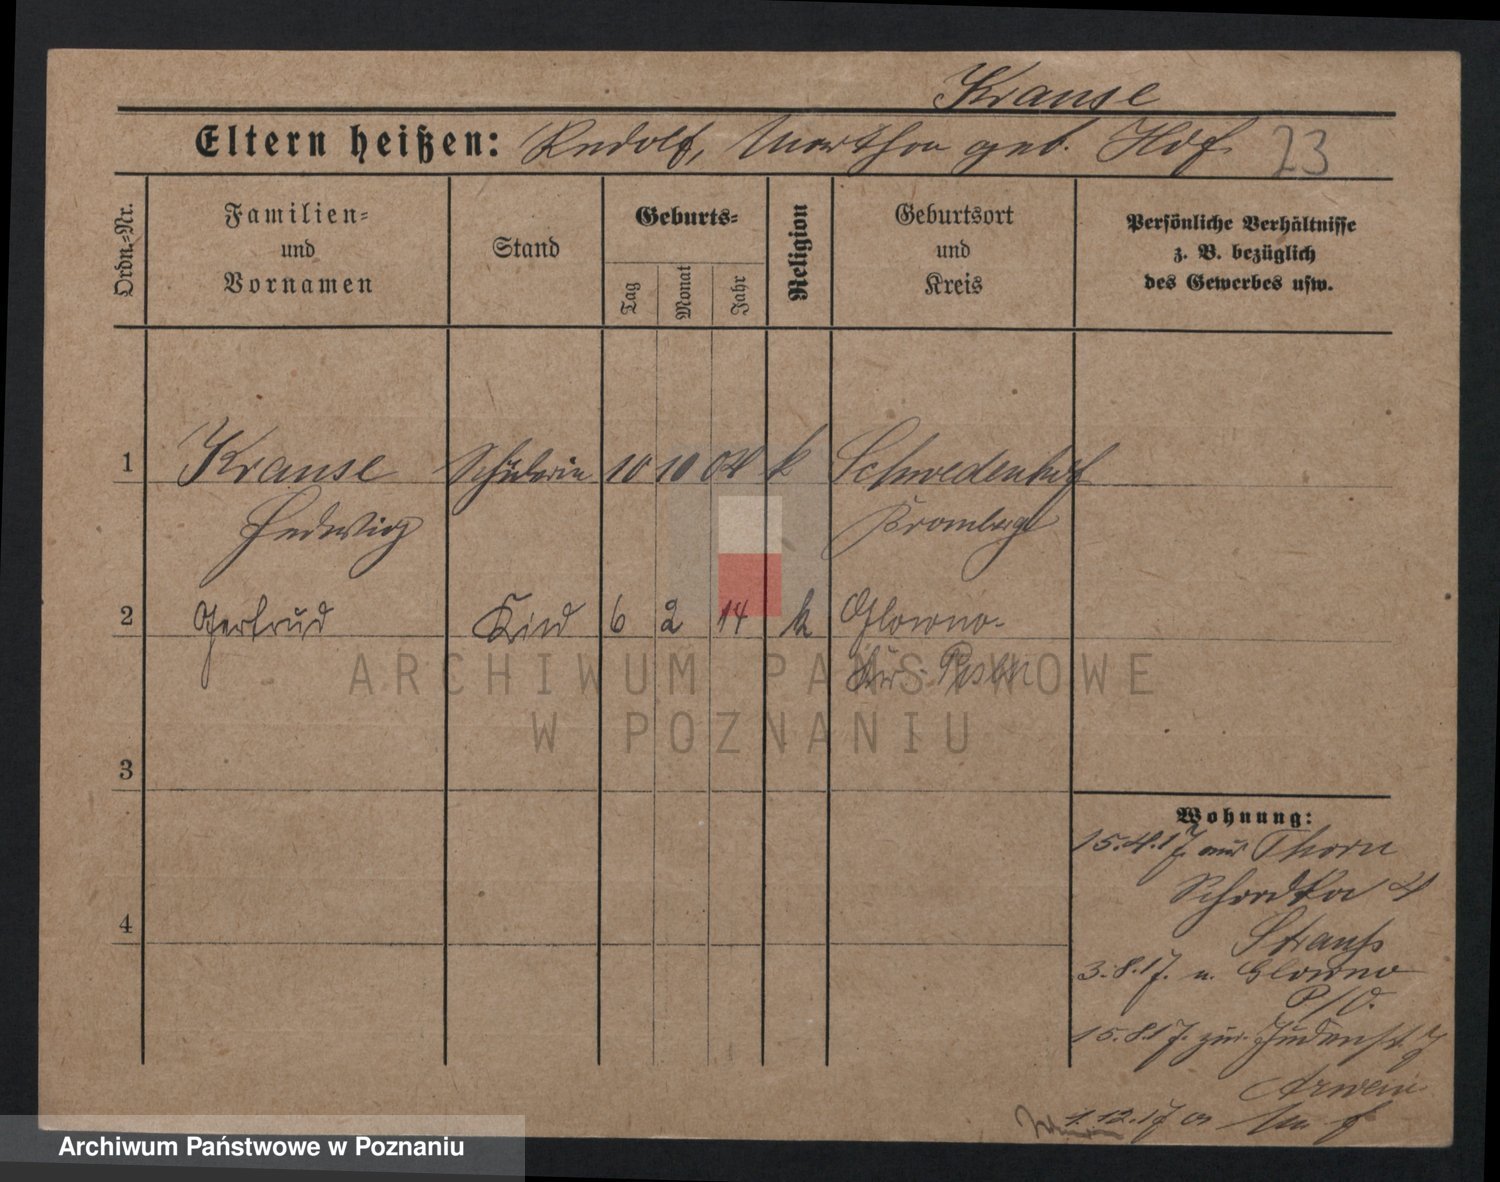 Krause
Eltern heißen: Rudolf, Martha geb. Hof 23
Ordn.=Nr.
Familien=
und
Vornamen
Stand
Geburts=
Tag
Monat
Jahr
Religion
Geburtsort
und
Kreis
Persönliche Verhältnisse
z. B. bezüglich
des Gewerbes usw.
1 Krause Schülerin 10 10 04 k Schwedenhof
Hedwig Bromberg
2 Gertrud Kind 6 2 14 k Glowno
Kr. Posen
ARCHIWUM PAŃSTWOWE
W POZNANIU
3
4
Wohnung:
15.4.17. aus Thorn
Schrodka 4
Strauss
3.8.17. n. Glowno
P/O.
15.8.17. zur. Judenstr. 7
1.12.17
Archiwum Państwowe w Poznaniu